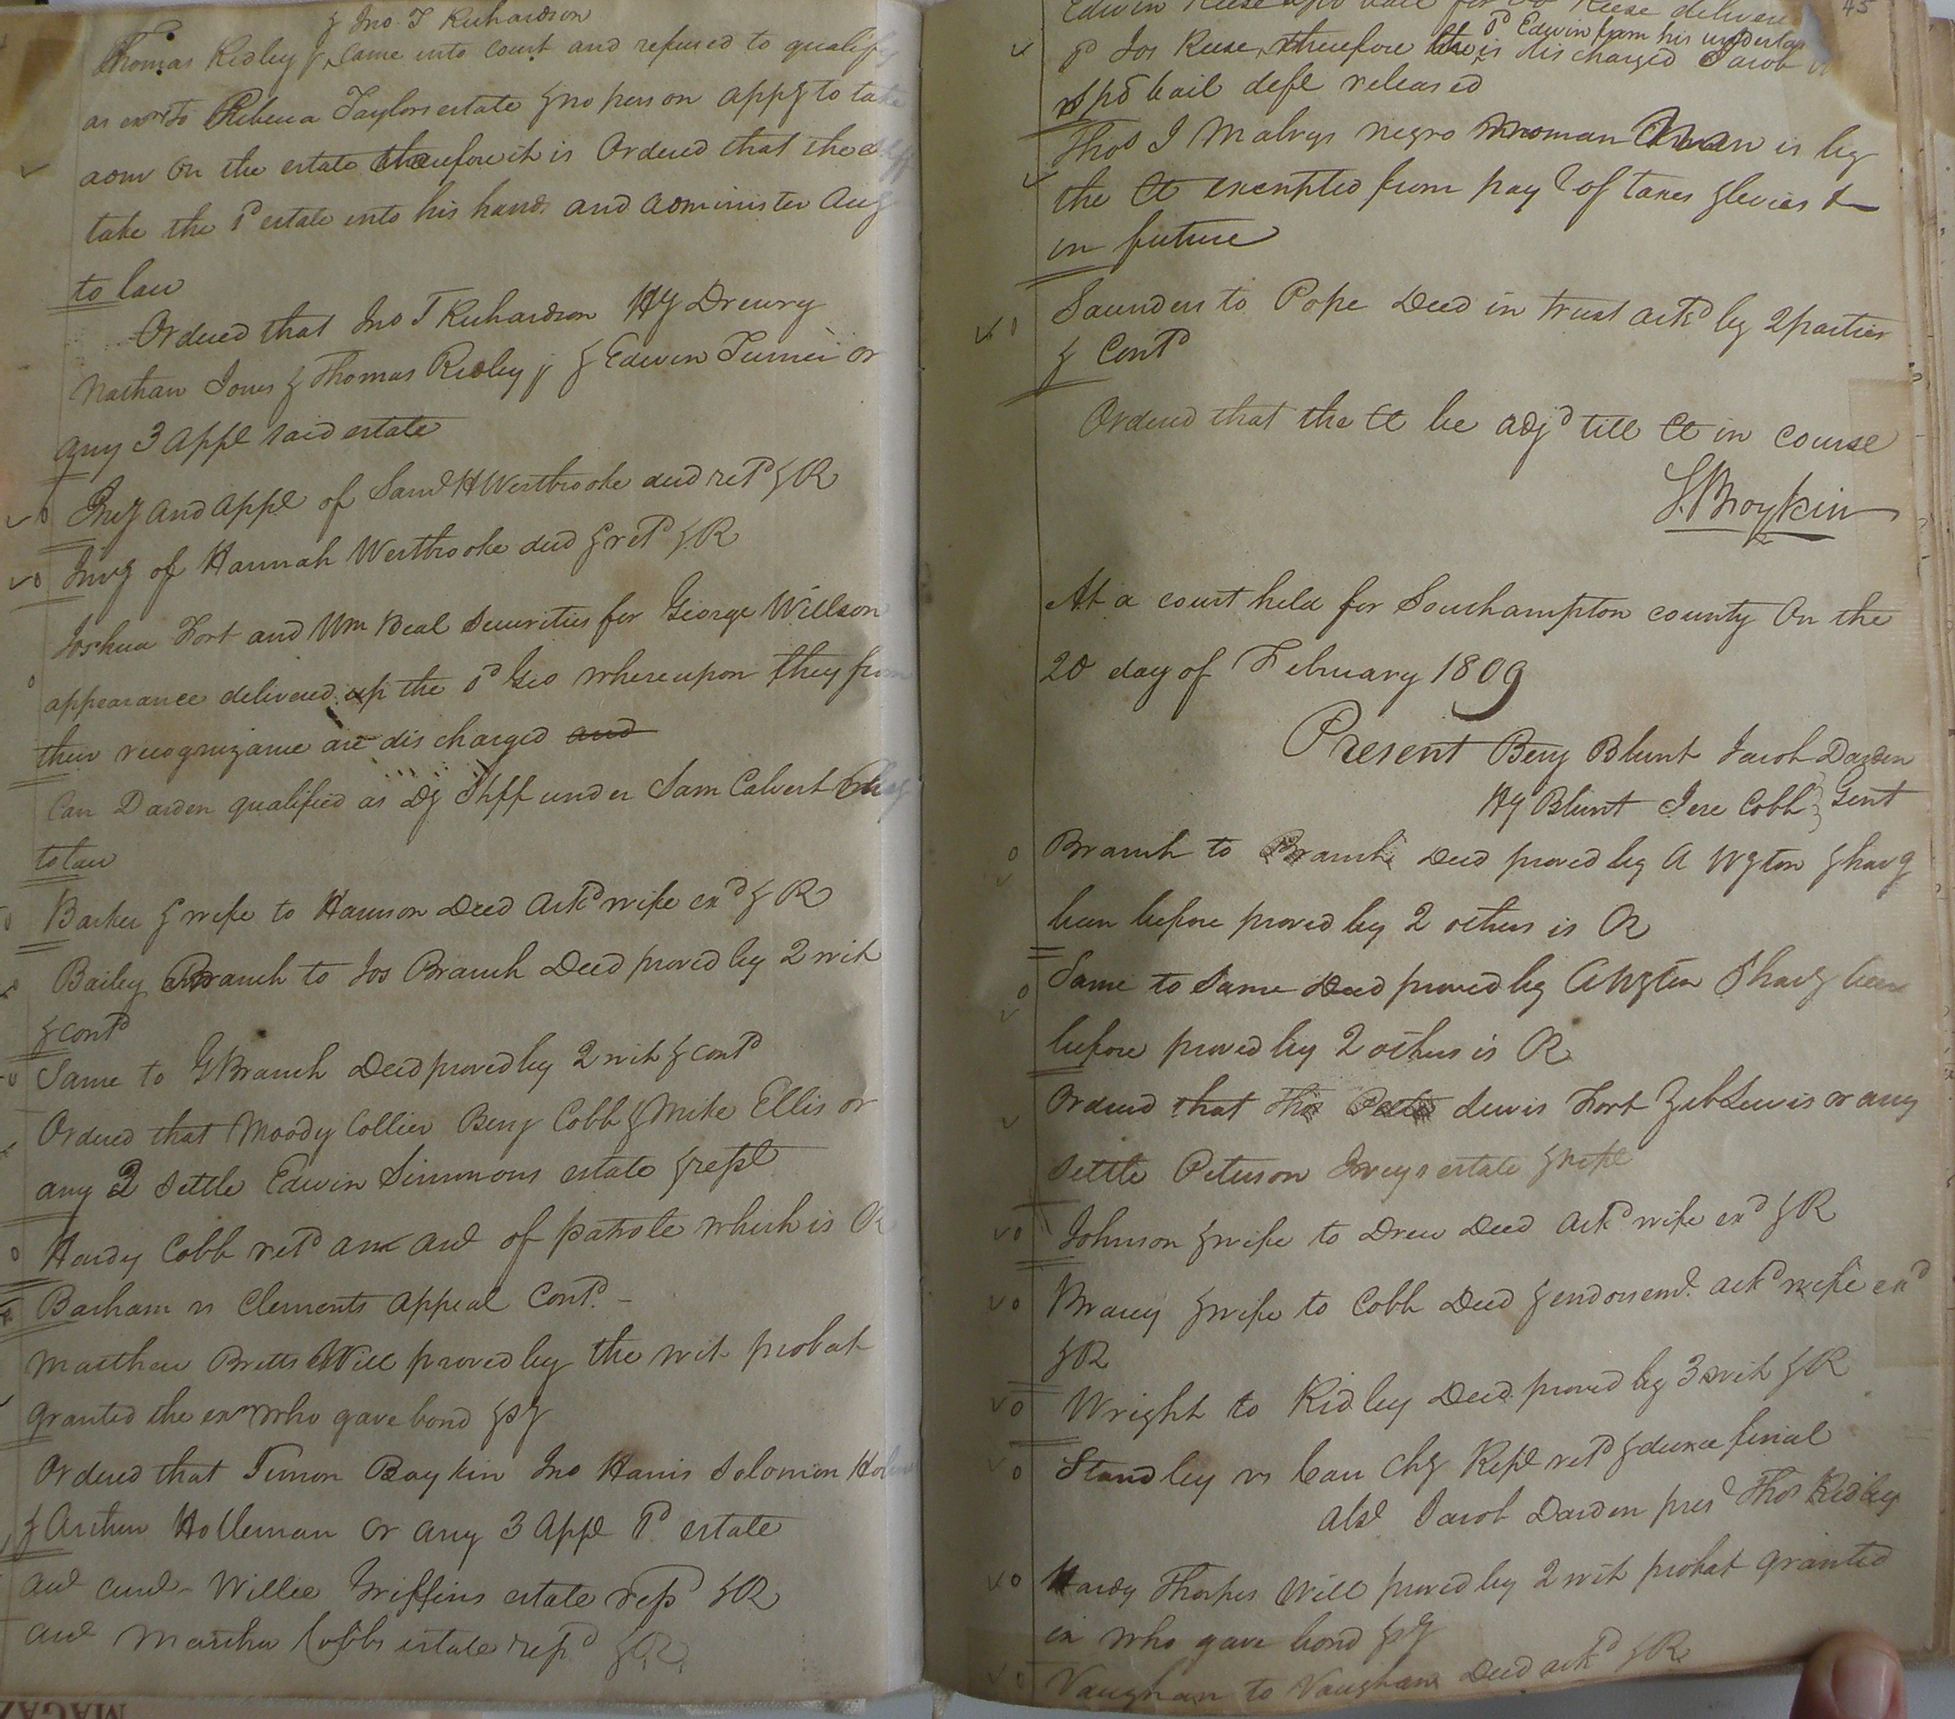 & Jno T Richardson
Thomas Ridley jr came into court and refused to qualify
as exr to Rebecca Taylors estate & no person appg to take
adm on the estate therefore it is Ordered that the
take the sd estate into his hands and administer accg
to law
Ordered that Jno T Richardson Hy Drewry
Nathan Jones & Thomas Ridley jr & Edwin Turner or
any 3 appl said estate
Invy and appl of Saml H Westbrooke decd retd & R
Invy of Hannah Westbrooke decd & retd & R
Joshua Fort and Wm Beal Securities for George Willson
appearance delivered up the sd Geo whereupon they from
their recognizance are discharged and
Carr Darden qualified as Dy Shff under Sam Calvert
to law
Barker & wife to Harrison Deed ackd wife exd & R
Bailey Branch to Jos Branch Deed proved by 2 wit
& contd
Same to G Branch Deed proved by 2 wit & contd
Ordered that Moody Collier Benj Cobb & Mike Ellis or
any 2 settle Edwin Simmons estate & repl
Hardy Cobb retd an acct of patrole which is R
Barham vs Clements appeal Contd
Matthew Britts Will proved by the wit probat
granted the exr who gave bond &c
Ordered that Simon Boykin Jno Harris Solomon
& Arthur Holleman or any 3 appl sd estate
acct curt Willie Griffins estate retd & R
acct Martha Cobbs estate retd & R
45
Edwin Reese spd bail for Jos Reese delivered
sd Edwin from his undertak
sd Jos Reese, therefore he is discharged Jacob
spd bail deft released
Thos J Malrys negro woman is by
the Ct exempted from payt of taxes & levies &
in future
Saunders to Pope Deed in trust ackd by 2 parties
& Contd
Ordered that the Ct be adjd till Ct in course
S. Boykin
At a court held for Southampton county On the
20 day of February 1809
Present Benj Blunt Jacob Darden
Hy Blunt Jere Cobb Gent
Branch to Branch Deed proved by A Wgton & havg
been before proved by 2 others is R
Same to Same Deed proved by A Wgton & havg been
before proved by 2 others is R
Ordered that Thos Lewis Fort Zeb Lewis or any
settle Peterson Iveys estate & repl
Johnson & wife to Drew Deed ackd wife exd & R
Bracy & wife to Cobb Deed & endorsemt ackd wife exd
& R
Wright to Ridley Deed proved by 3 wit & R
Standley vs Carr Chy Repl retd & decree final
abst Jacob Darden prest Thos Ridley
Hardy Thorpes Will proved by 2 wit probat granted
ex who gave bond &c
Vaughan to Vaughan Deed ackd & R